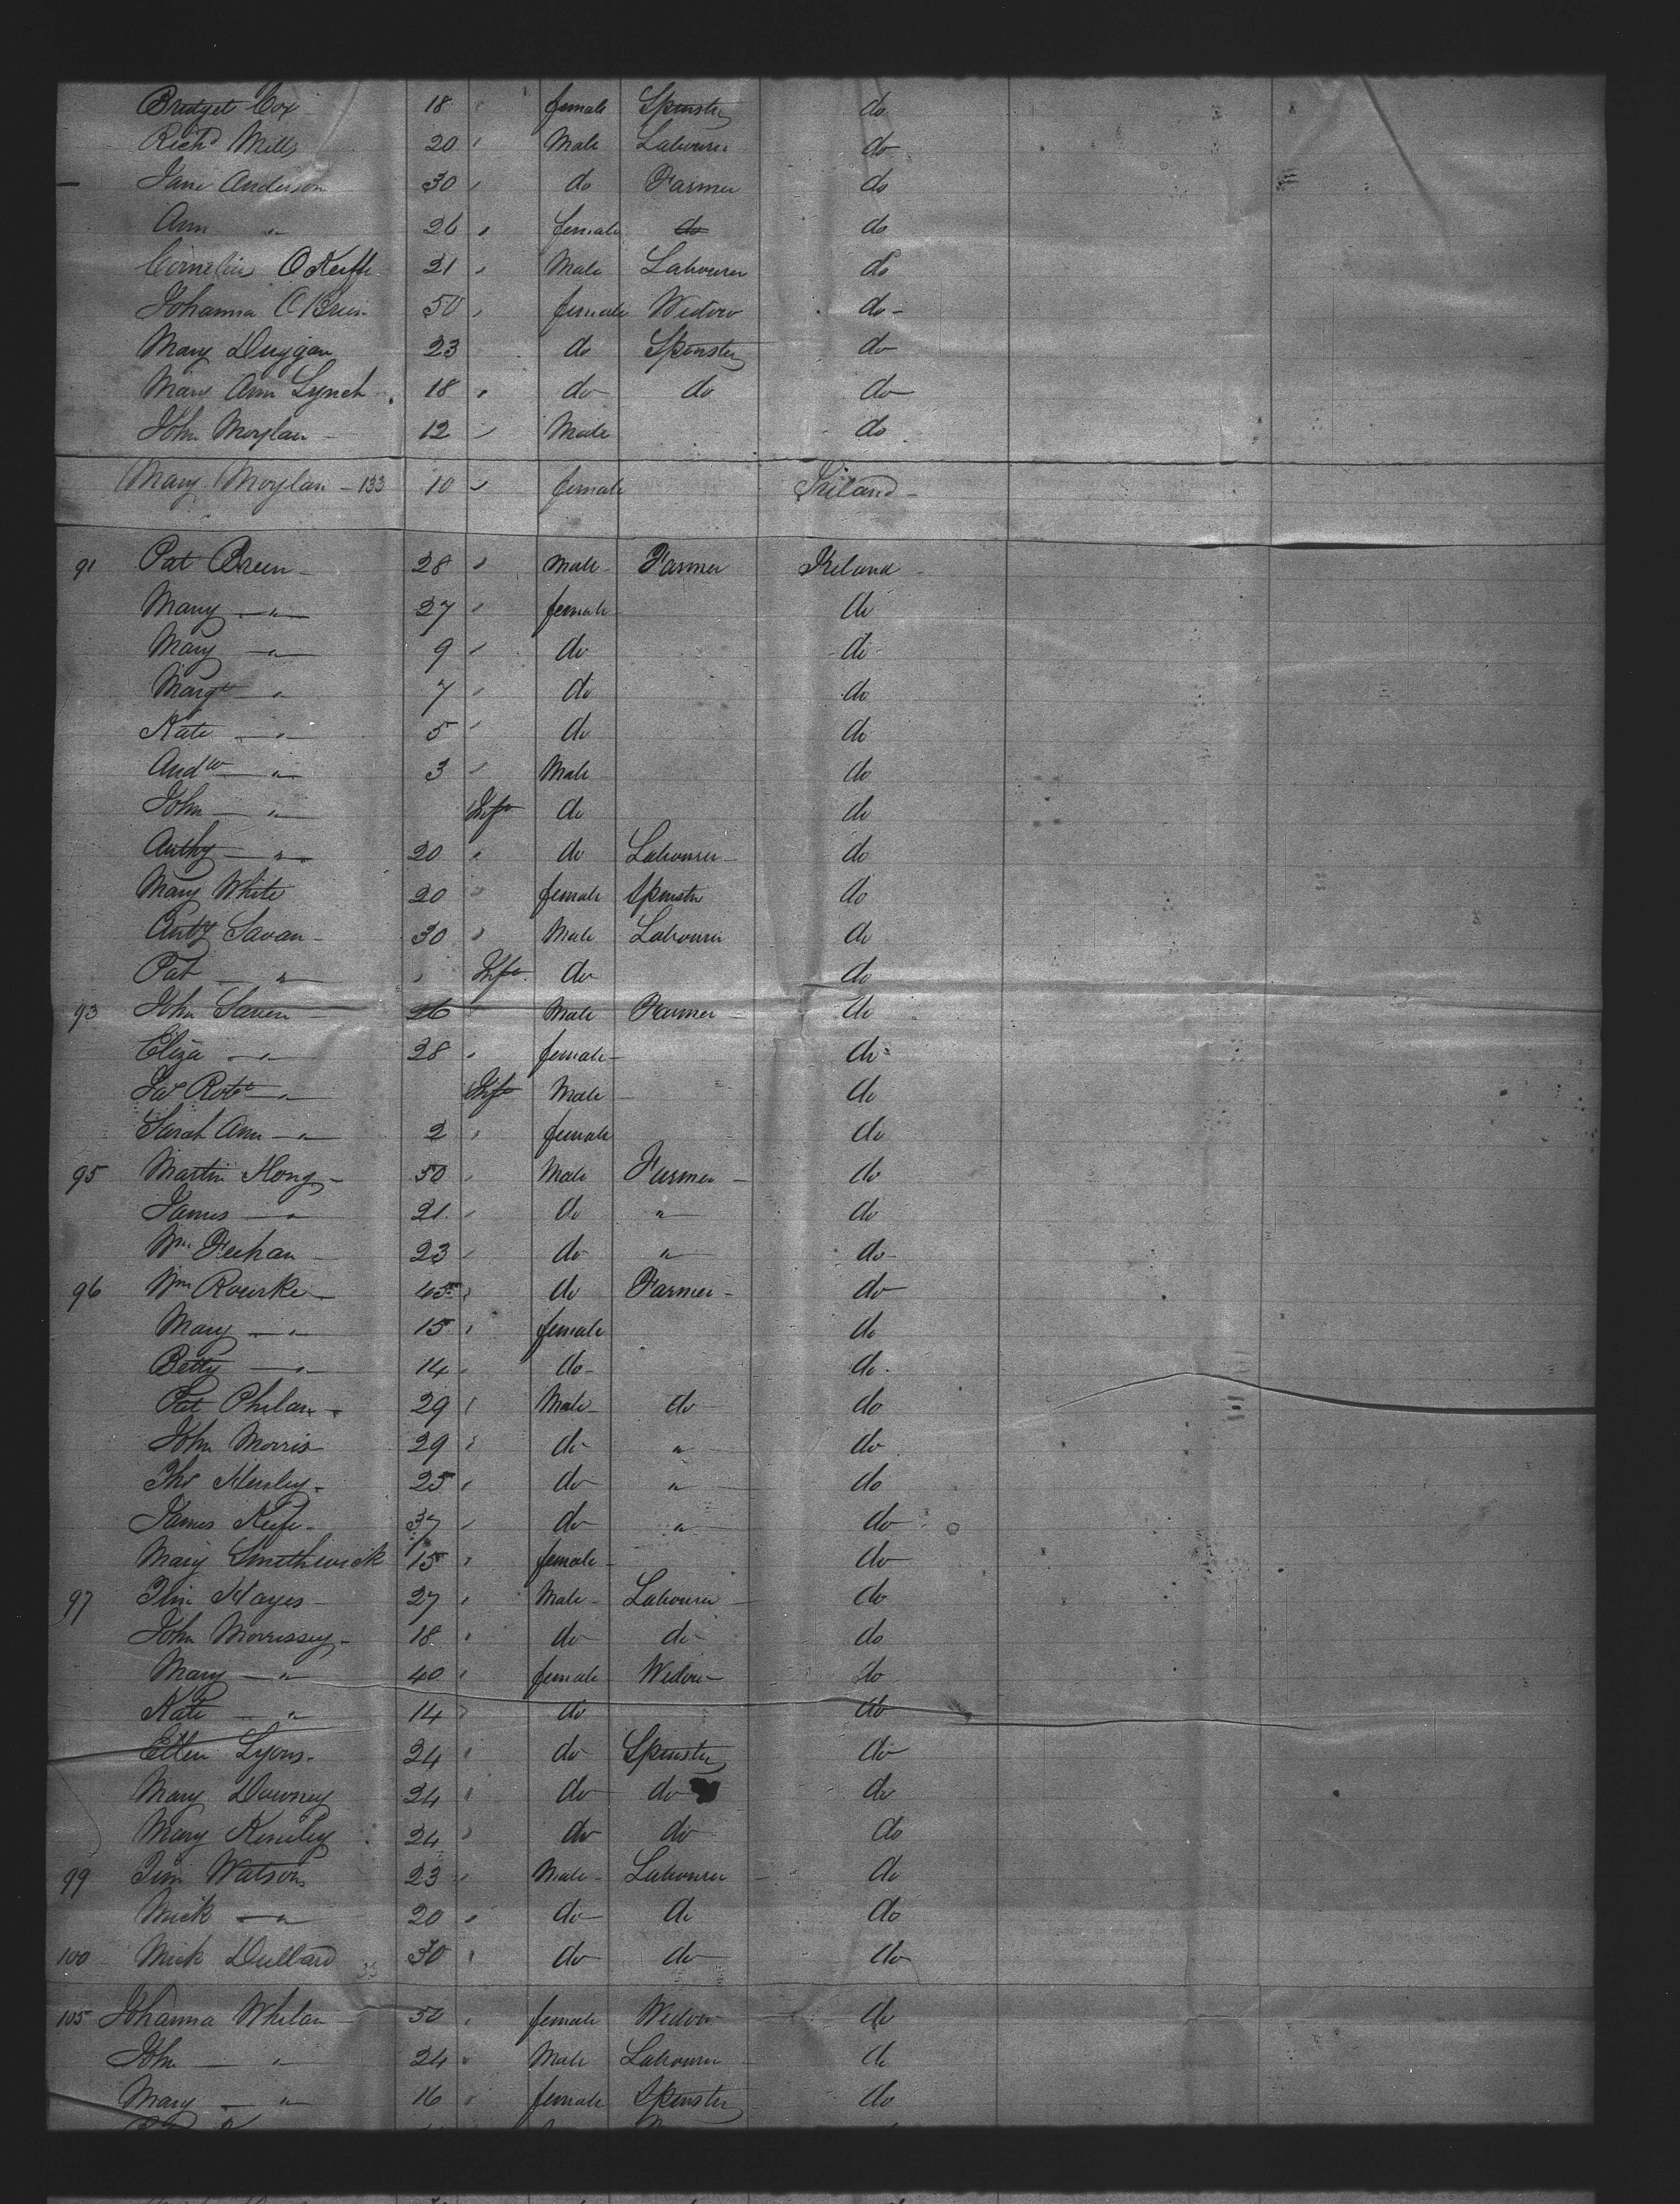 Bridget Cox 18 " female Spinster do
Richd Mills 20 " Male Labourer do
Jane Anderson 30 " do Farmer do
Ann " 26 " female do do
Cornelius O Keiffe 21 " Male Labourer do
Johanna O Brien 50 " female Widow do -
Mary Duggan 23 do Spinster do
Mary Ann Lynch 18 " do do do
John Moylan - 12 " Male do
Mary Moylan - 133 10 " female Ireland -
91 Pat Breen - 28 " Male Farmer Ireland -
Mary - " - 27 " female do
Mary - " - 9 " do do
Margt " 7 " do do
Kate - " - 5 " do do
Andw - " - 3 " Male do
John - " - Inft do do
Anthy - " - 20 " do Labourer - do
Mary White 20 " female Spinster do
Anty Savan - 30 " Male Labourer do
Pat - " - " Inft do do
93 John Saven - 26 " Male Farmer - do
Eliza - " - 28 " female - do
Jas Robt - " - Inft Male do
Sarah Ann - " - 2 " female do
95 Martin Hong - 50 " Male Farmer - do
James - " - 21 " do " do
Wm Feehan - 23 " do " do
96 Wm Rourke - 45 " do Farmer - do
Mary - " - 15 " female do
Betty - " - 14 " do - do -
Pat Phelan - 29 " Male - do do
John Morris 29 " do " do
Thos 25 " do " do
James Keefe - 37 " do " do
Mary Smethwick 15 " female - do
97 Tim Hayes - 27 " Male - Labourer do
John Morrissey - 18 " do do do
Mary - " - 40 " female Widow do
Kate - " 14 " do do
Ellen Lyons - 24 " do Spinster do
Mary Downey 24 " do do do
Mary Keneley 24 " do do do
99 Tim Watson 23 " Male - Labourer - do
Mick - " - 20 " do do do
100 Mick Dullard 33 30 " do do do
105 Johanna Whelan - 50 " female Widow do
John - " - 24 " Male Labourer do
Mary - " - 16 " female Spinster do